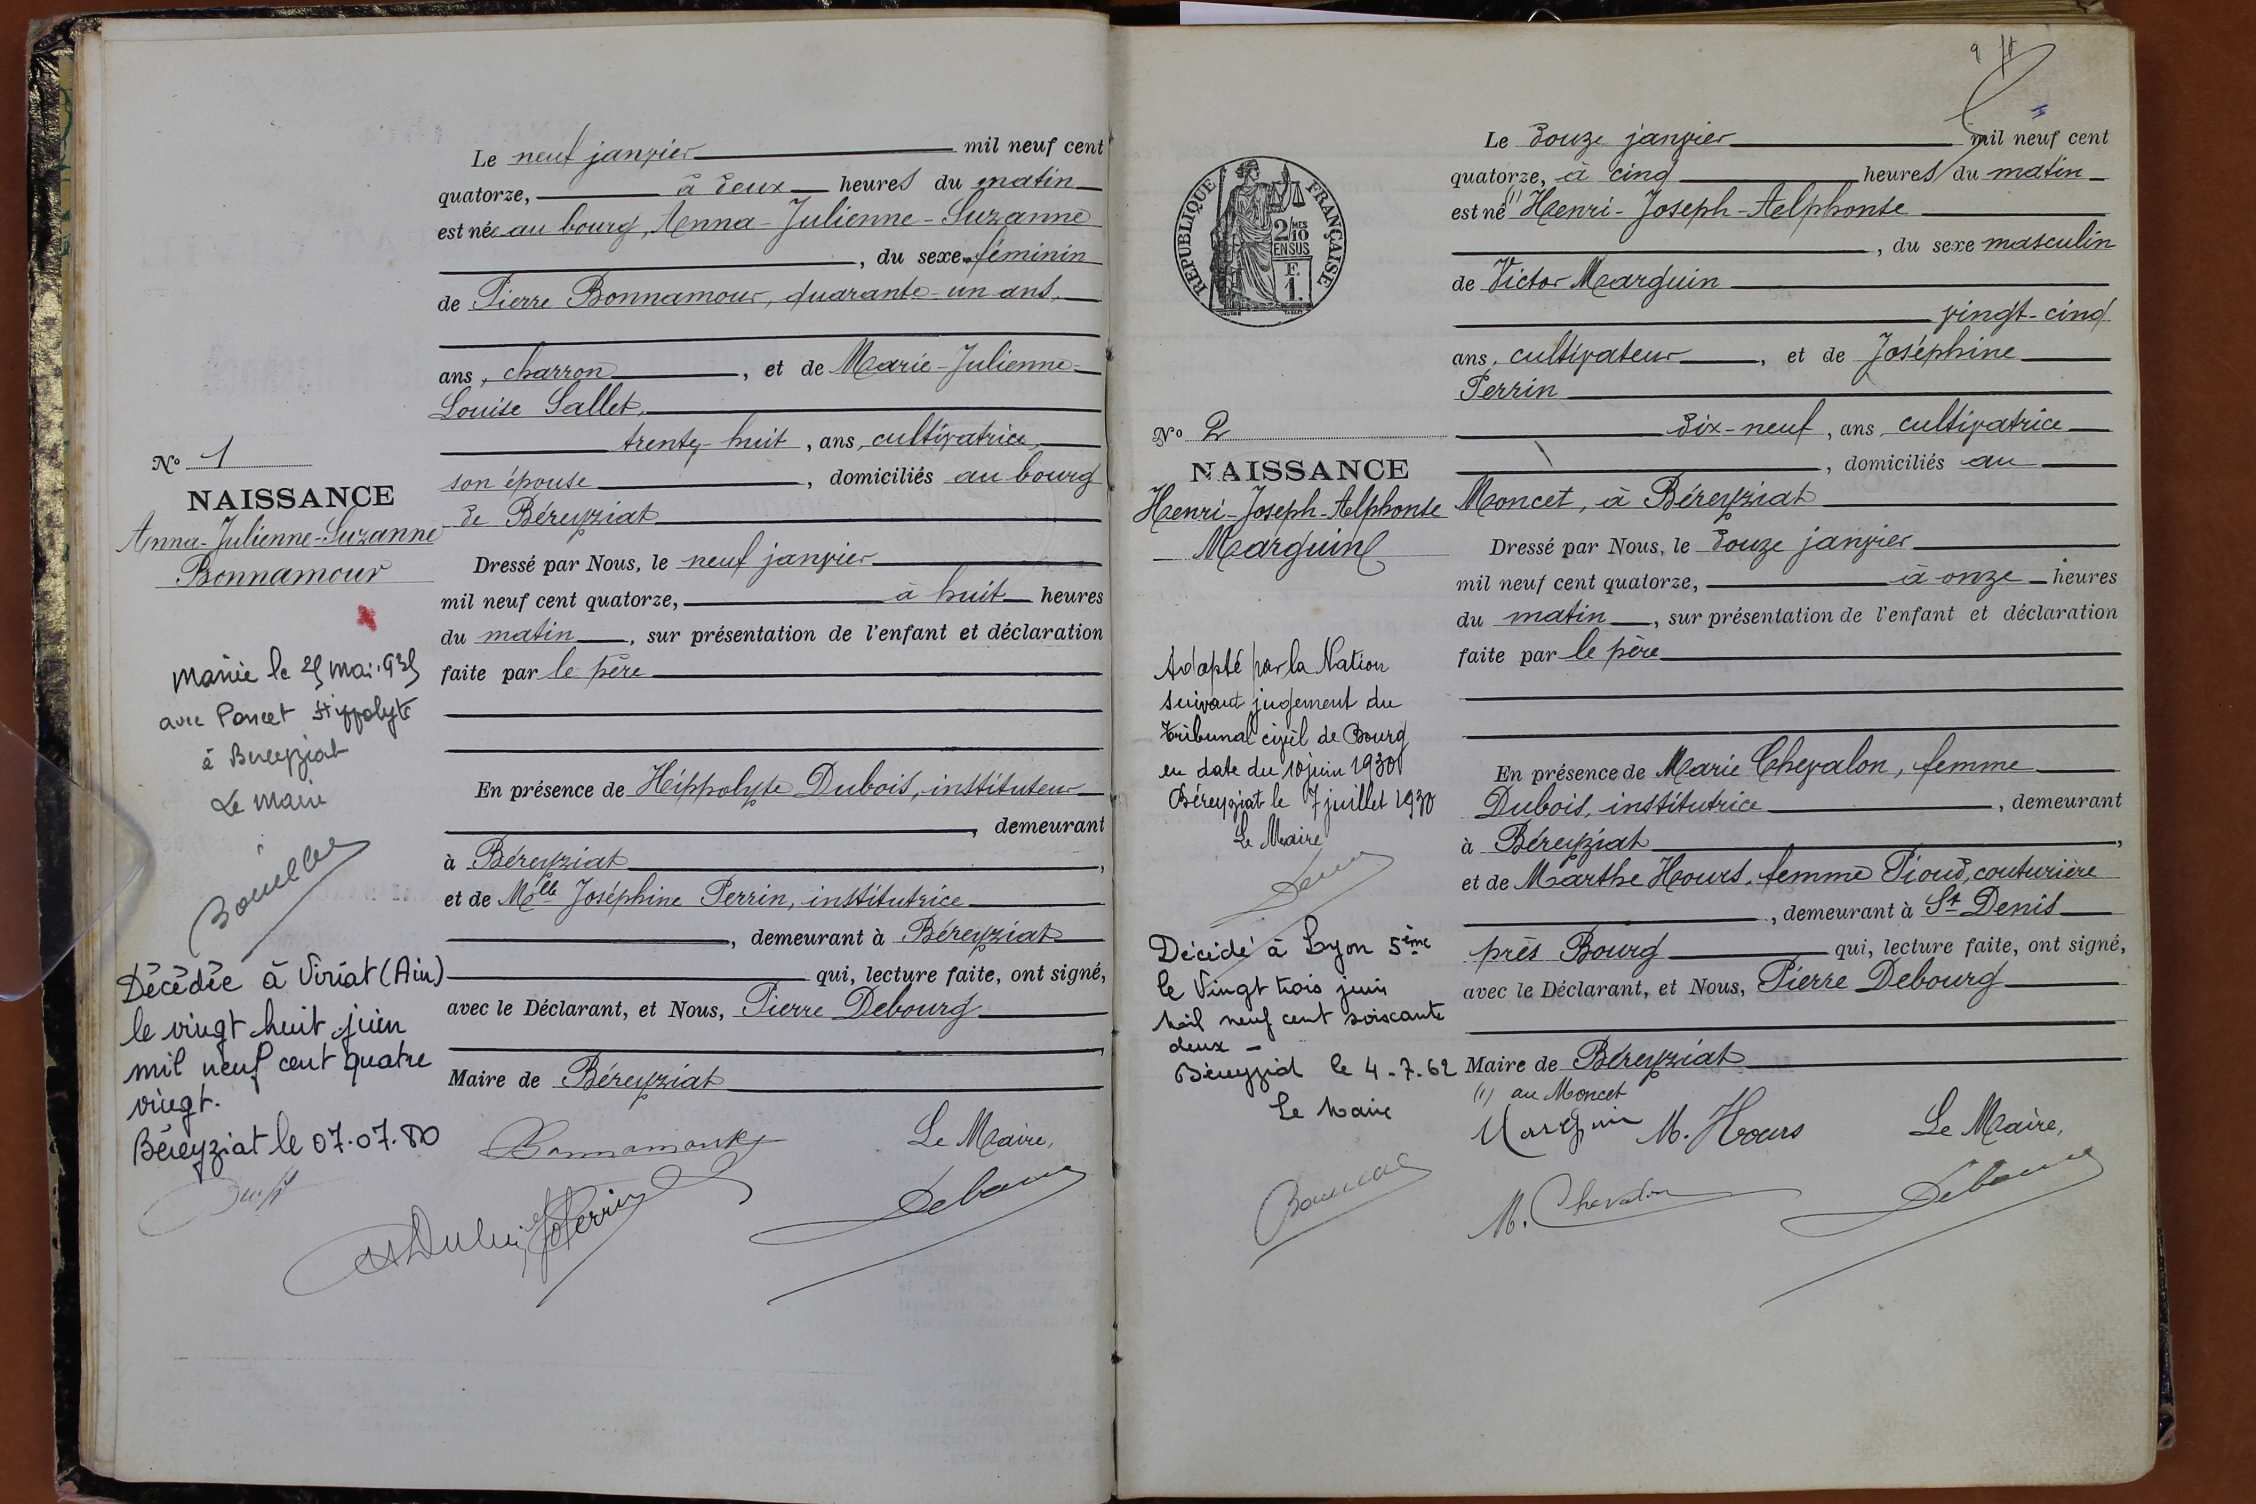 Le neuf janvier mil neuf cent
quatorze, à deux heures du matin
est née au bourg, Anna-Julienne-Suzanne
, du sexe féminin
de Pierre Bonnamour, quarante-un ans,
ans, charron, et de Marie-Julienne-
Louise Sallet,
trente-huit, ans, cultivatrice,
son épouse, domiciliés au bourg
de Béreyziat
Dressé par Nous, le neuf janvier
mil neuf cent quatorze, à huit heures
du matin, sur présentation de l'enfant et déclaration
faite par le père
En présence de Hippolyte Dubois, instituteur
, demeurant
à Béreyziat,
et de Mlle Joséphine Perrin, institutrice
, demeurant à Béreyziat
qui, lecture faite, ont signé,
avec le Déclarant, et Nous, Pierre Debourg
Maire de Béreyziat
Le Maire,
No 1
NAISSANCE
Anna-Julienne-Suzanne
Bonnamour
Mariée le mai 
avec Poncet Hippolyte
à Bereyziat
Le Maire
Décédée à Viriat (Ain)
le vingt huit juin
mil neuf cent quatre
vingt.
Béreyziat le 07.07.80
RÉPUBLIQUE FRANÇAISE
2/10MES
EN SUS
F.
1.
No 2
NAISSANCE
Henri-Joseph-Alphonse
Marguin
Adopté par la Nation
suivant jugement du
tribunal civil de Bourg
en date du 10 juin 1930
Béreyziat le 7 juillet 1930
Le Maire
Décédé à Lyon 5ème
le Vingt trois juin
mil neuf cent soixante
deux -
Béreyziat le 4-7-62
Le Maire
Le douze janvier mil neuf cent
quatorze, à cinq heures du matin
est né (1) Henri-Joseph-Alphonse
, du sexe masculin
de Victor Marguin
vingt-cinq
ans, cultivateur, et de Joséphine
Perrin
dix-neuf, ans, cultivatrice
, domiciliés au
Moncet, à Béreyziat
Dressé par Nous, le douze janvier
mil neuf cent quatorze, à onze heures
du matin, sur présentation de l'enfant et déclaration
faite par le père
En présence de Marie Chevalon, femme
Dubois, institutrice, demeurant
à Béreyziat,
et de Marthe Hours, femme Pioud, couturière
, demeurant à St Denis
près Bourg qui, lecture faite, ont signé,
avec le Déclarant, et Nous, Pierre Debourg
Maire de Béreyziat
(1) au Moncet
Marguin M. Hours Le Maire,
M. Chevalon